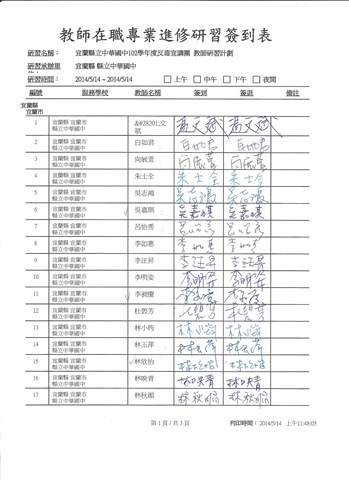 教師在職專業進修研習簽到表
研習名稱： 宜蘭縣立中華國中102學年度反毒宣講團 教師研習計劃
研習承辦單 宜蘭縣 縣立中華國中
研習時間： 2014/5/14～2014/5/14 □上午 □中午 □下午 □夜間
編號 服務學校 教師名稱 簽到 簽退 備註
宜蘭縣
宜蘭市
1 宜蘭縣 宜蘭市 縣立中華國中 &#28201;文斌 溫文斌 溫文斌
2 宜蘭縣 宜蘭市 縣立中華國中 白如君 白如君 白如君
3 宜蘭縣 宜蘭市 縣立中華國中 向展萱 向展萱 向展萱
4 宜蘭縣 宜蘭市 縣立中華國中 朱士全 朱士全 朱士全
5 宜蘭縣 宜蘭市 縣立中華國中 吳志鴻 吳志鴻 吳志鴻
6 宜蘭縣 宜蘭市 縣立中華國中 吳嘉琪 吳嘉琪 吳嘉琪
7 宜蘭縣 宜蘭市 縣立中華國中 呂怡秀
8 宜蘭縣 宜蘭市 縣立中華國中 李如惠
9 宜蘭縣 宜蘭市 縣立中華國中 李汪昇 李汪昇 李汪昇
10 宜蘭縣 宜蘭市 縣立中華國中 李明姿 李明姿 李明姿
11 宜蘭縣 宜蘭市 縣立中華國中 李昶慶
12 宜蘭縣 宜蘭市 縣立中華國中 杜碧芳
13 宜蘭縣 宜蘭市 縣立中華國中 林小昀
14 宜蘭縣 宜蘭市 縣立中華國中 林玉萍 林玉萍 林玉萍
15 宜蘭縣 宜蘭市 縣立中華國中 林欣怡
16 宜蘭縣 宜蘭市 縣立中華國中 林映青 林映青 林映青
17 宜蘭縣 宜蘭市 縣立中華國中
第 1 頁 / 共 3 頁 列印時間：2014/5/14 上午11:48:05